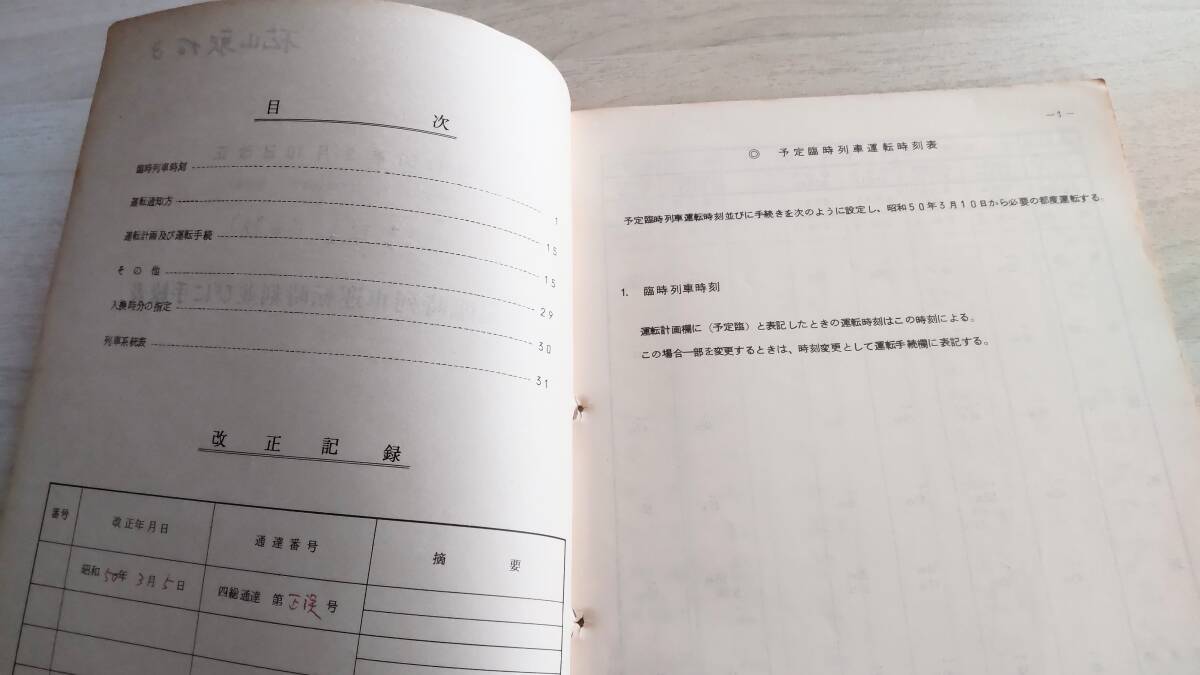 目次
臨時列車時刻 1
運転通知方 15
運転計画及び運転手続 15
その他 29
入換時分の指定 30
列車系統表 31
改正記録
番号 改正年月日 通達番号 摘要
昭和50年3月5日 四総通達 第正誤号
—1—
◎ 予定臨時列車運転時刻表
予定臨時列車運転時刻並びに手続きを次のように設定し、昭和50年3月10日から必要の都度運転する。
1. 臨時列車時刻
運転計画欄に（予定臨）と表記したときの運転時刻はこの時刻による。
この場合一部を変更するときは、時刻変更として運転手続欄に表記する。